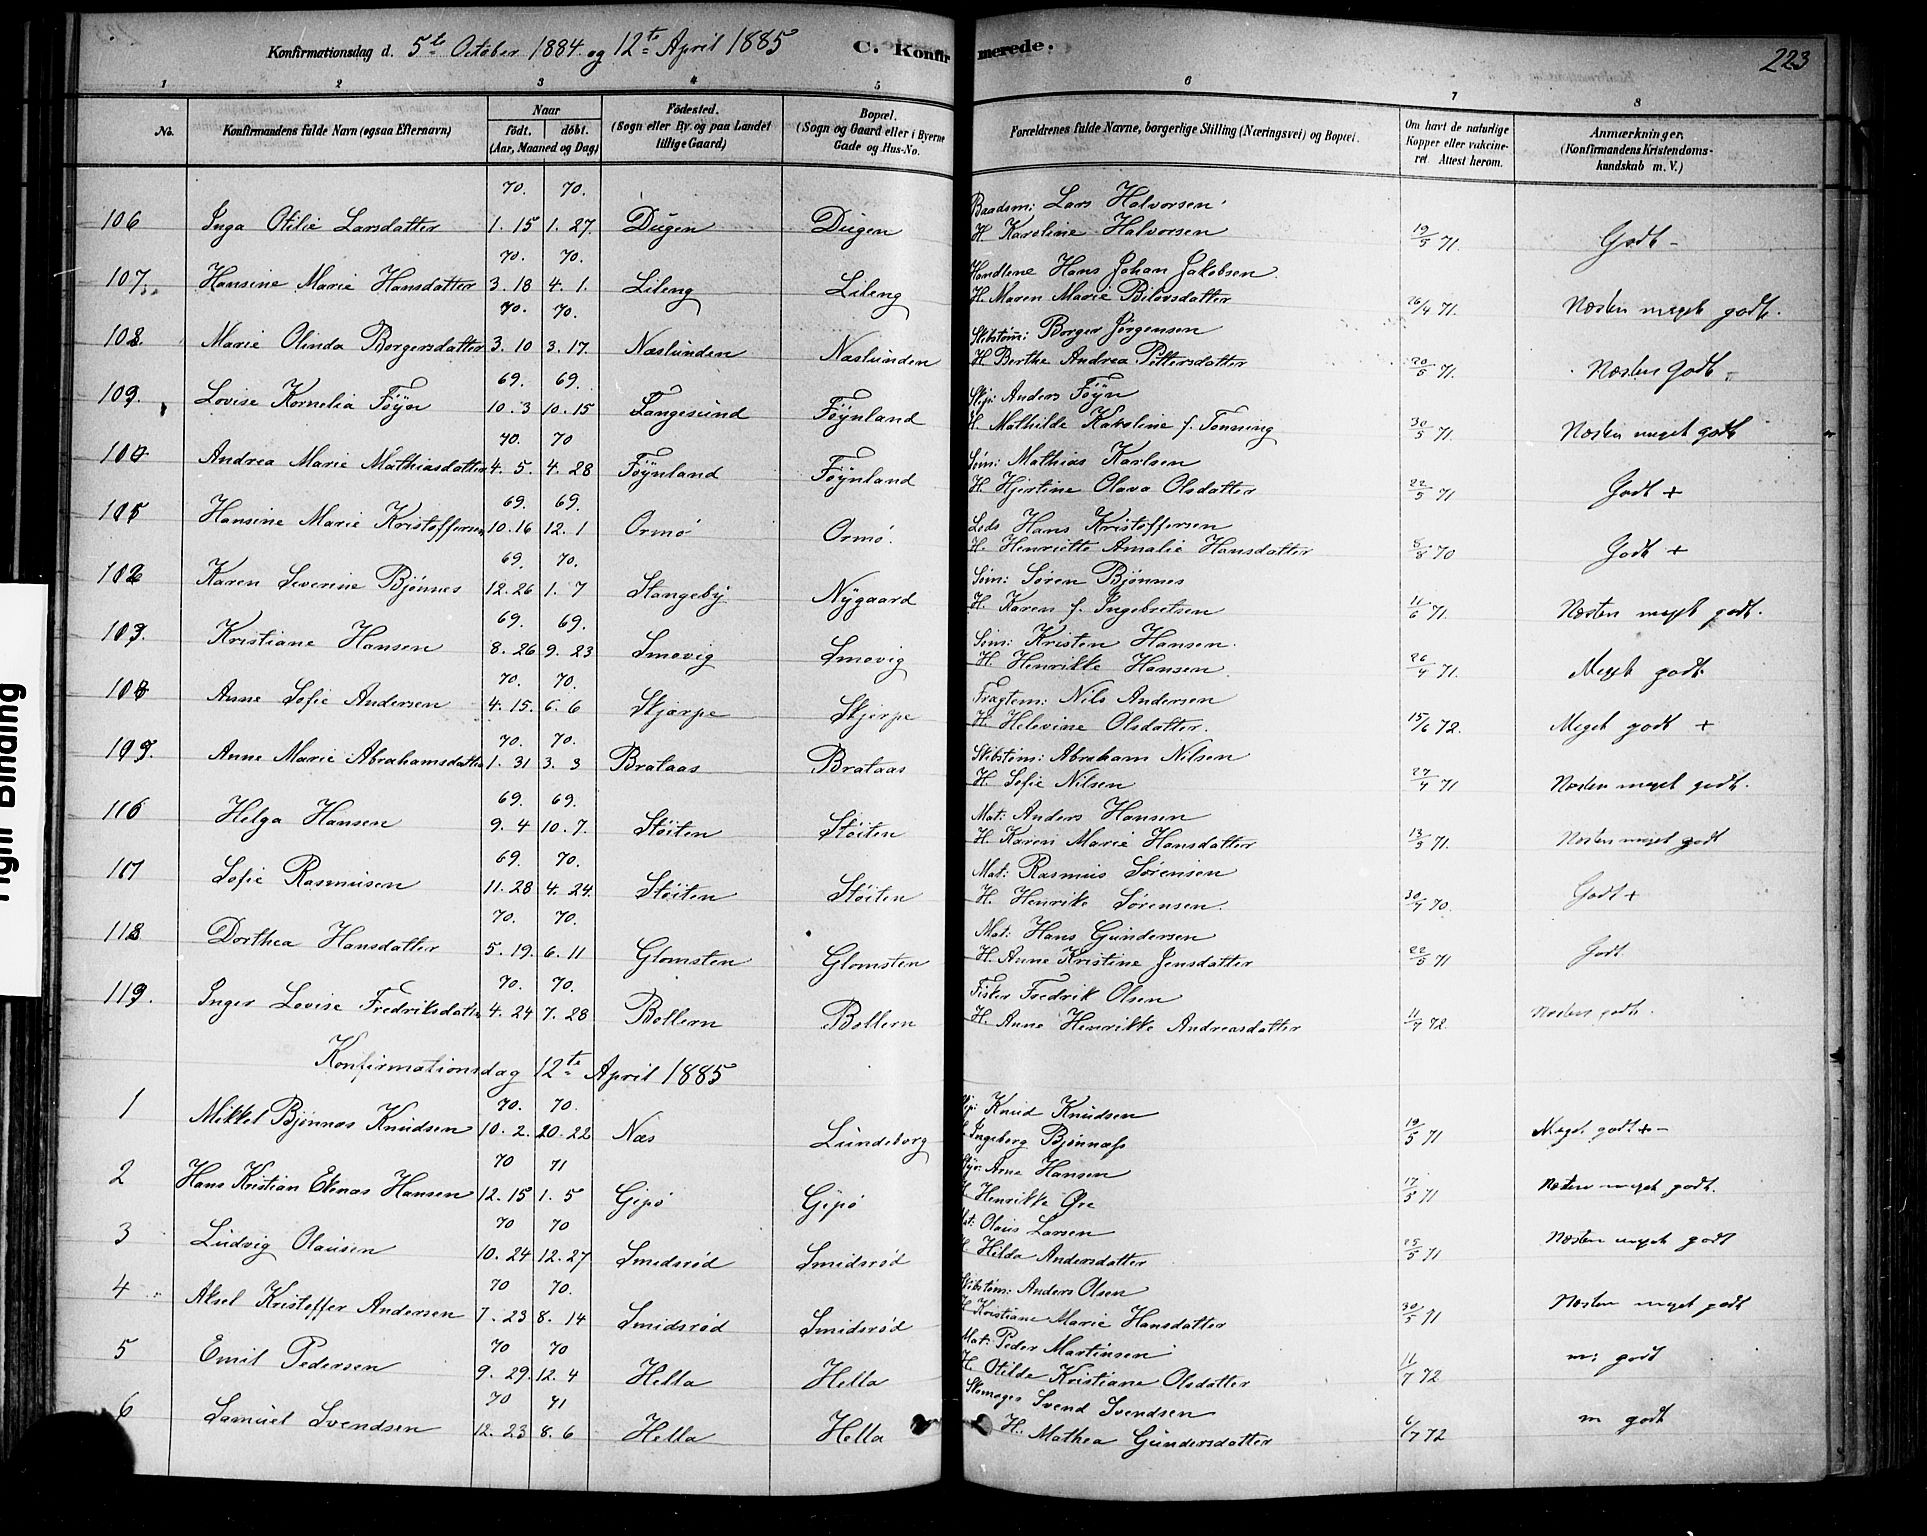 Konfirmationsdag d. 5te October 1884 og 12te April 1885
C. Konfirmerede.
223
1 2 3 4 5 6 7 8
No. Konfirmandens fulde Navn (ogsaa Efternavn) Naar født. døbt. (Aar, Maaned og Dag) Fødested. (Sogn eller By og paa Landet tillige Gaard) Bopæl. (Sogn og Gaard eller i Byerne Gade og Hus-No. Forældrenes fulde Navne, borgerlige Stilling (Næringsvei) og Bopæl. Om havt de naturlige Kopper eller vakcineret. Attest herom. Anmærkninger. (Konfirmandens Kristendomskundskab m. V.)
70. 70. Baadsm: Lars Halvorsen
106 Inga Otilie Larsdatter 1. 15 1. 27. Dugen Dugen H. Karoline Halvorsen 19/5 71. Godt -
70. 70. Handlene Hans Johan Jakobsen
107. Hansine Marie Hansdatter 3. 18 4. 1. Lileng Lileng H. Maren Marie 26/4 71. Næsten meget godt.
70. 70. Skibstøm: Borger Jørgensen
108 Marie Olinda Borgersdatter 3. 10 3. 17. Næslunden Næslunden H. Berthe Andrea Pettersdatter 20/5 71. Næsten godt -
69. 69. Skip: Anders Føyn
109. Lovise Kornelia Føyn 10. 3 10. 15 Langesund Føynland H. Mathilde Karoline f. Tønning 30/5 71. Næsten meget godt
70. 70 Søm: Mathias Karlsen
100 Andrea Marie Mathiasdatter 4. 5. 4. 28 Føynland Føynland H. Hjertine Olava Olsdatter 22/5 71 Godt +
69. 69. Lods Hans Kristoffersen
105 Hansine Marie Kristoffersen 10. 16 12. 1 Ormø Ormø. H. Henriette Amalie Hansdatter 8/8 70 Godt +
69. 70. Søm: Søren Bjønnes
102 Karen Severine Bjønnes 12. 26 1. 7 Stangeby Nygaard H. Karen f. Ingebretsen 11/6 71. Næsten meget godt.
69. 69. Søm: Kristen Hansen.
103. Kristiane Hansen 8. 26 9. 23 Smovig Smovig H. Henrikke Hansen. 26/4 71. Meget godt
70. 70. Fragtem: Nils Andersen
108 Anne Sofie Andersen 4. 15. 6. 6 Skjerpe Skjerpe H. Helevine Olsdatter. 15/6 72. Meget godt +
70. 70. Skibstøm: Abraham Nilsen
109. Anne Marie Abrahamsdatter 1. 31 3. 3 Brataas Brataas H. Sofie Nilsen 27/4 71 Næsten meget godt.
69. 69. Mat: Anders Hansen
116 Helga Hansen 9. 4 10. 7. Støiten Støiten H. Karen Marie Hansdatter 13/5 71. Næsten meget godt
69. 70. Mat: Rasmus Sørensen
117 Sofie Rasmusen 11. 28 4. 24. Støiten Støiten H. Henrike Sørensen. 30/4 70. Godt +
70. 70. Mat: Hans Gundersen
118 Dorthea Hansdatter 5. 19. 6. 11 Glomsten Glomsten H. Anne Kristine Jensdatter 22/5 71 Godt.
70. 70. Fisker Fredrik Olsen
119. Inger Lovise Fredriksdatter 4. 24 7. 28 Bollern Bollern H. Anne Henrikke Andreasdatter 11/7 72. Næsten godt.
Konfirmationsdag 12te April 1885
70. 70. Skip: Knud Knudsen
1 Mikkel Bjønnes Knudsen 10. 2. 20. 22 Næs Lundeborg H. Ingeborg Bjønnæss 19/5 71 Meget godt + -
70 71 Styr: Arne Hansen
2 Hans Kristian Ekenæs Hansen 12. 15 1. 5 Gipø Gipø H. Henrikke Øre 17/5 71 Næsten meget godt.
70 70 Mat: Olaus Larsen
3 Ludvig Olausen 10. 24 12. 27 Smidsrød Smidsrød H. Hilda Andersdatter 25/5 71 Næsten meget godt
70 70. Skibstøm: Anders Olsen
4 Aksel Kristoffer Andersen 7. 23 8. 14 Smidsrød Smidsrød H. Kristiane Marie Hansdatter 30/5 71 Næsten meget godt
70 70 Mat: Peder Martinsen
5 Emil Pedersen 9. 29. 12. 4 Hella Hella H. Otilde Kristiane Olsdatter 11/7 72 m: godt
70 71 Skomager Svend Svendsen
6 Samuel Svendsen 12. 23 8. 6 Hella Hella H. Mathea Gundersdatter 6/7 72 m godt
Tight Binding